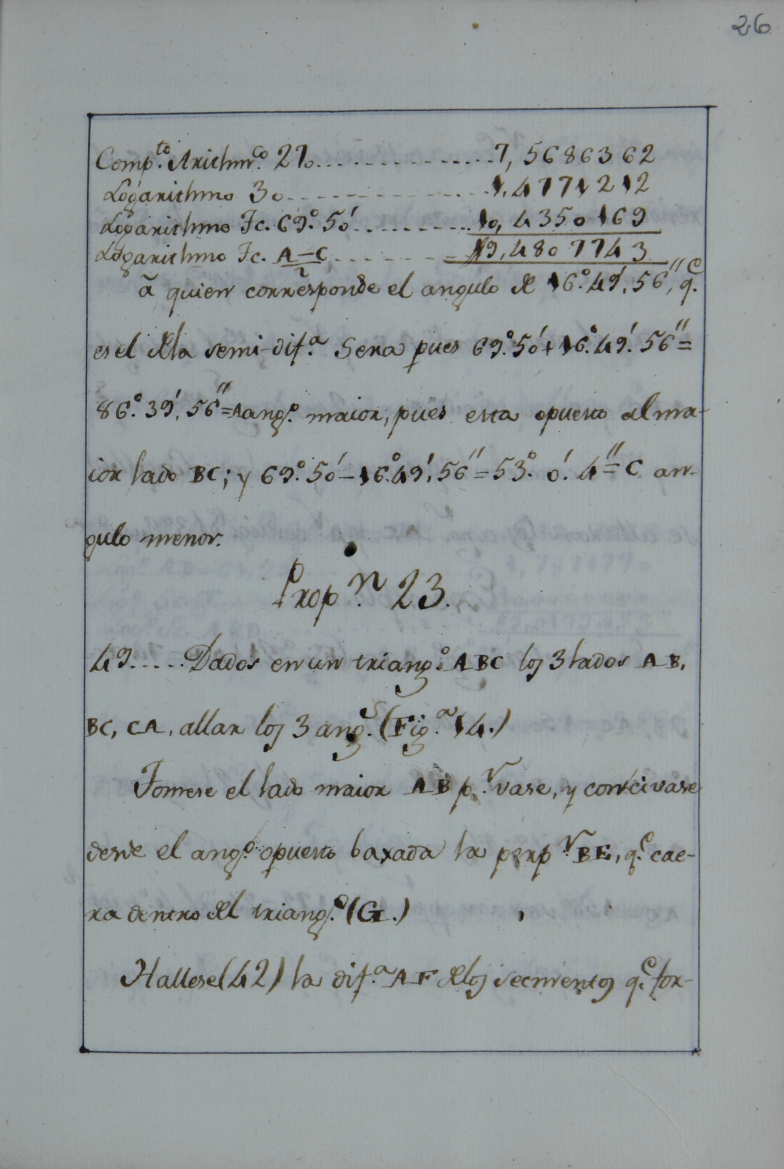 26
Comp.to Arithm.co 270............7,5686362
Logarithmo 30............1,4771212
Logarithmo Tc. 69.° 50′............10,4350169
Logarithmo Tc. A-C/2............19,4807743
à quien corresponde el angulo de 16.° 49′, 56″, q.e
es el de la semi-dif.a Sera pues 69.° 50′ + 16.° 49′. 56″ =
86.° 39′, 56″ = A ang.o maior, pues esta opuesto al ma-
ior lado BC; y 69.° 50′ - 16.° 49′, 56″ = 53.° 0′. 4″ = C an-
gulo menor.
Prop.n 23.
49..... Dados en un triang.o ABC los 3 lados AB,
BC, CA, allar los 3 ang.s (Fig.a 14.)
Tomese el lado maior AB p.r vase, y concivase
desde el ang.o opuesto baxada la perp.r BE, q.e cae-
ra dentro del triang.o (G.)
Hallese (42) la dif.a AF de los secmentos q.e for-